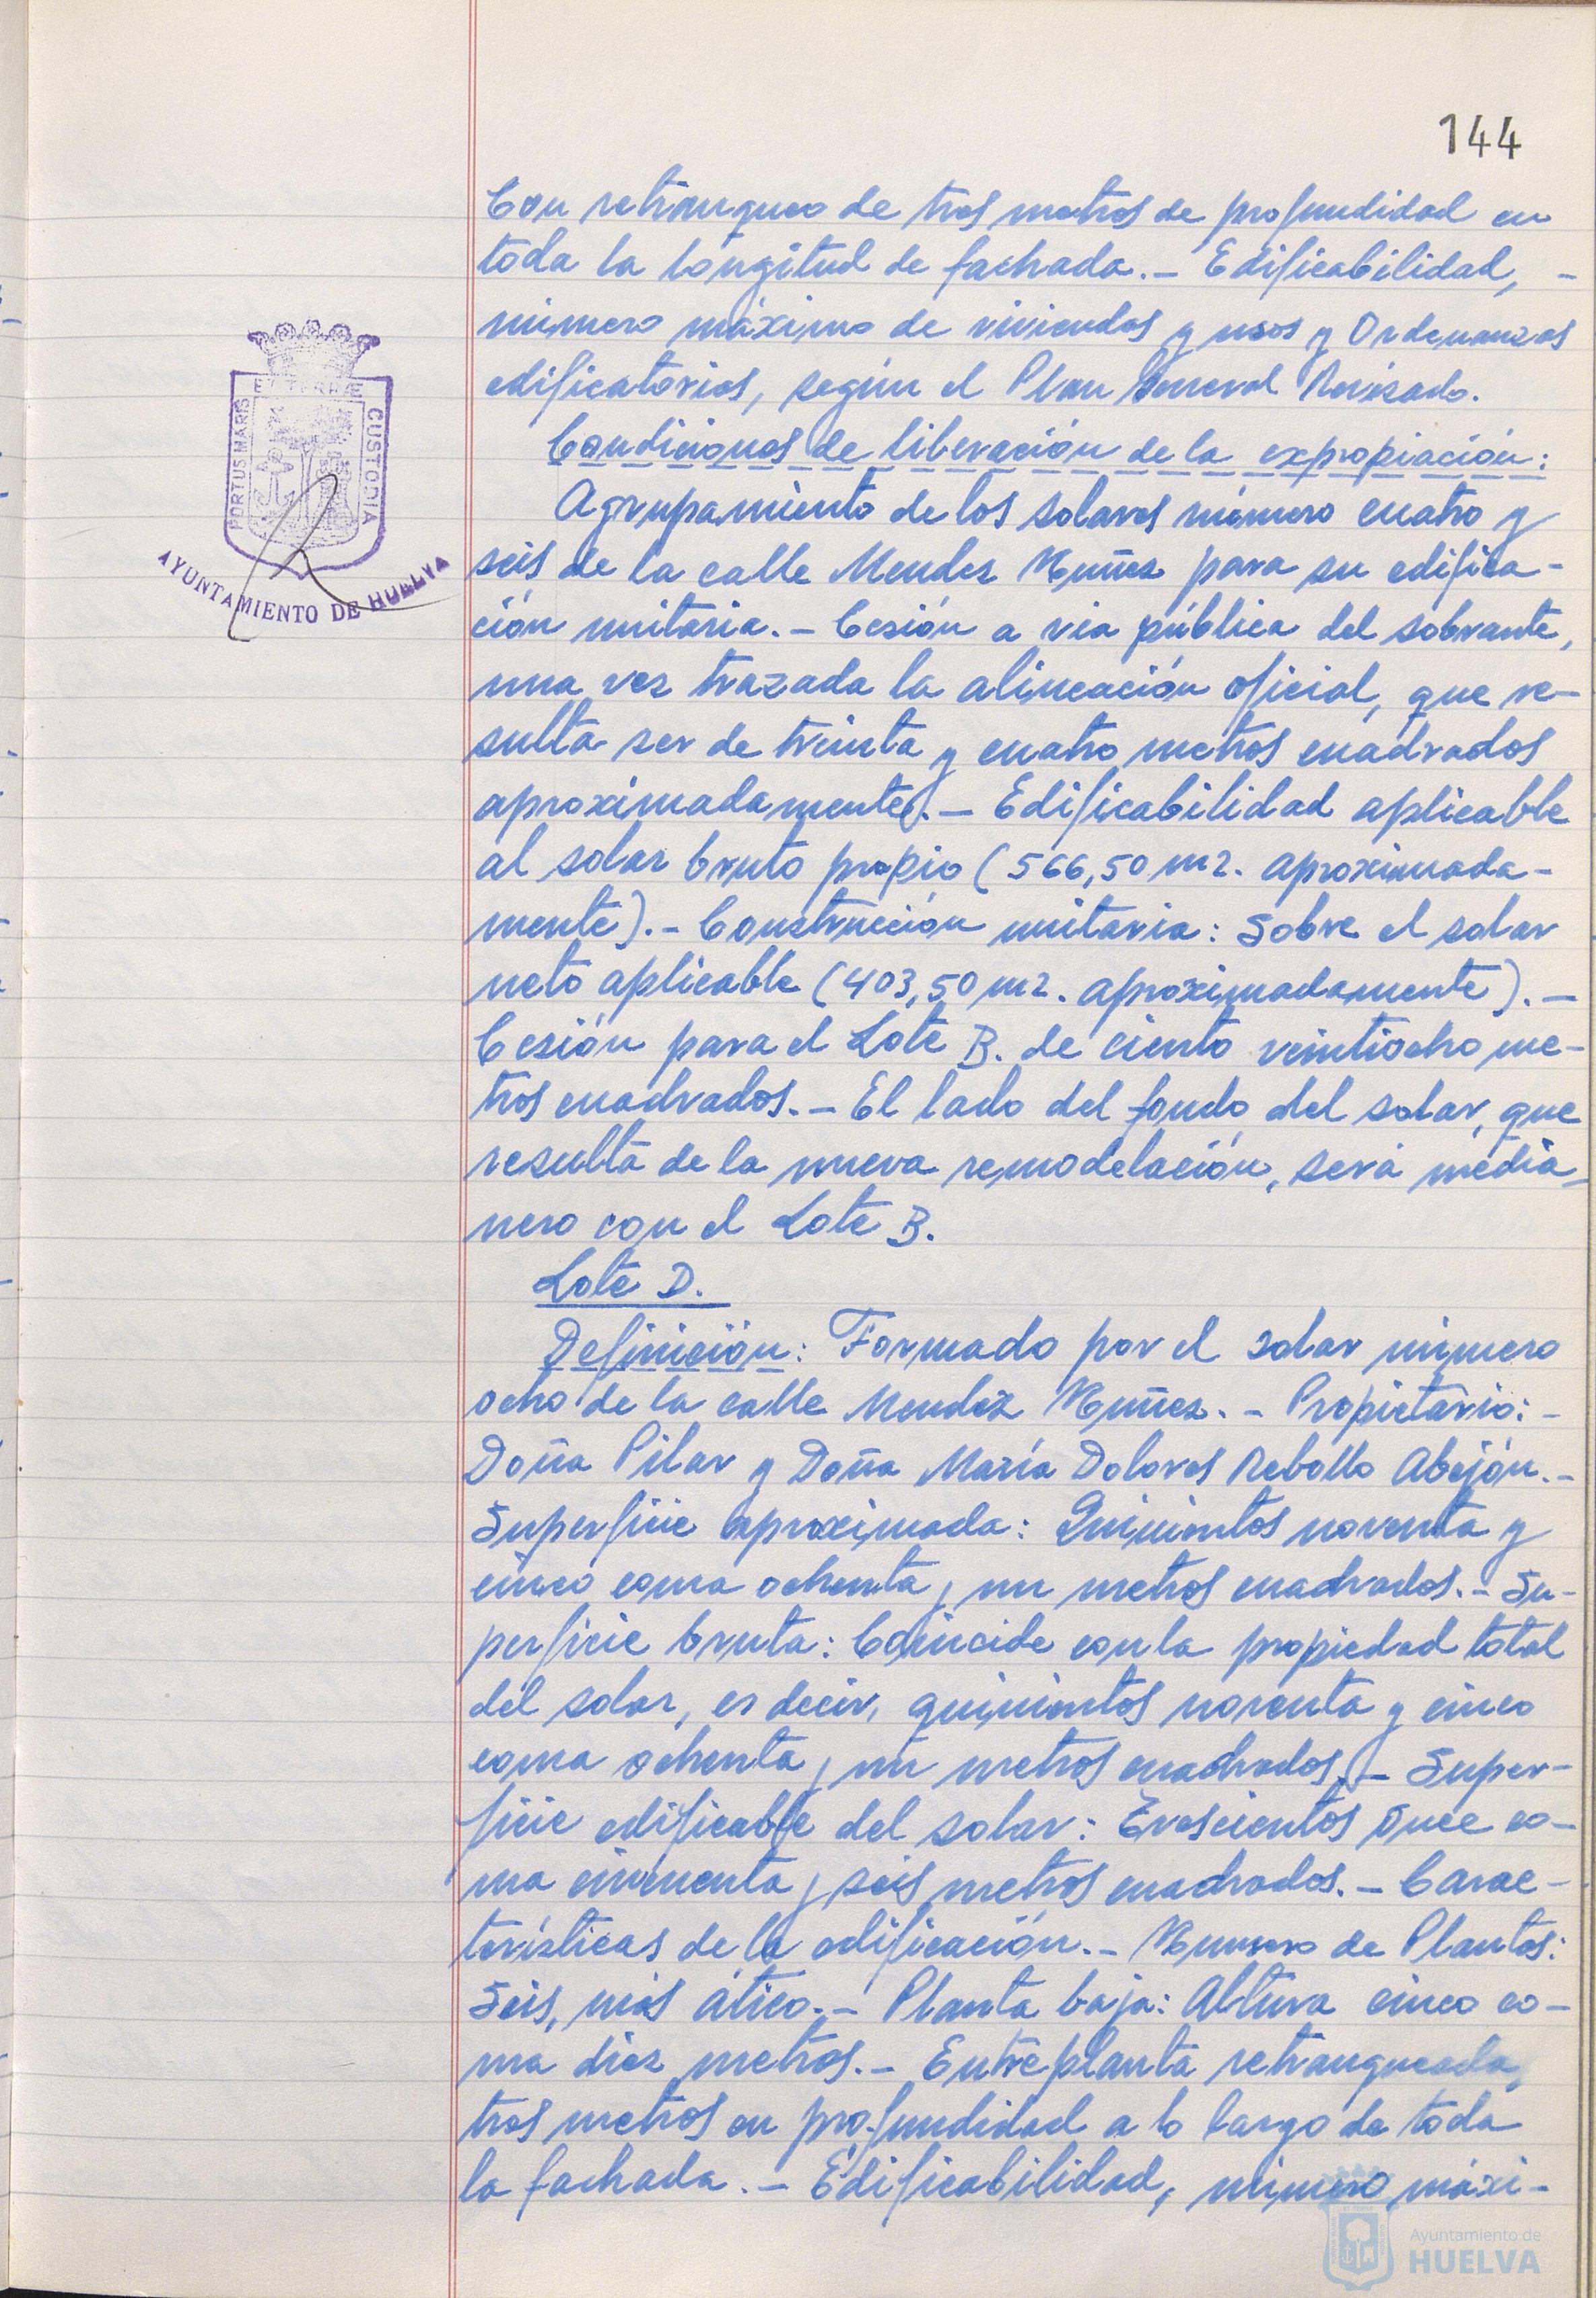 144
Con retranqueo de tres metros de profundidad en
toda la longitud de fachada.- Edificabilidad, -
número máximo de viviendas y usos y Ordenanzas
edificatorias, según el Plan General Revisado.
Condiciones de liberación de la expropiación:
Agrupamiento de los solares número cuatro y
seis de la calle Mendez Nuñez para su edifica-
ción unitaria.- Cesión a via pública del sobrante,
una vez trazada la alineación oficial, que re-
sulta ser de treinta y cuatro metros cuadrados
aproximadamente.- Edificabilidad aplicable
al solar bruto propio (566,50 m2. aproximada-
mente).- Construcción unitaria: Sobre el solar
neto aplicable (403,50 m2. aproximadamente).-
Cesión para el Lote B. de ciento veintiocho me-
tros cuadrados.- El lado del fondo del solar, que
resulta de la nueva remodelación, será media-
nero con el Lote B.
Lote D.
Definición: Formado por el solar número
ocho de la calle Mendez Nuñez.- Propietario: -
Doña Pilar y Doña María Dolores Rebollo Abejón.-
Superficie aproximada: Quinientos noventa y
cinco coma ochenta y un metros cuadrados.- Su-
perficie bruta: Coincide con la propiedad total
del solar, es decir, quinientos noventa y cinco
coma ochenta y un metros cuadrados.- Super-
ficie edificable del solar: Trescientos once co-
ma cincuenta y seis metros cuadrados.- Carac-
terísticas de la edificación.- Numero de Plantas:
Seis, más ático.- Planta baja: Altura cinco co-
ma diez metros.- Entreplanta retranqueada,
tres metros en profundidad a lo largo de toda
la fachada.- Edificabilidad, número máxi-
PORTUS MARIS
ET TERRAE
CUSTODIA
AYUNTAMIENTO DE HUELVA
Ayuntamiento de
HUELVA